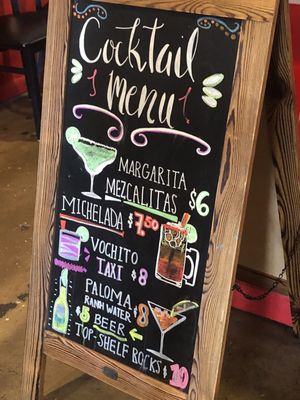 Cocktail
Menu
MARGARITA
MEZCALITAS $6
MICHELADA $7.50
VOCHITO
TAXI $8
PALOMA
RANCH WATER $8
$5 BEER
TOP-SHELF ROCKS $10